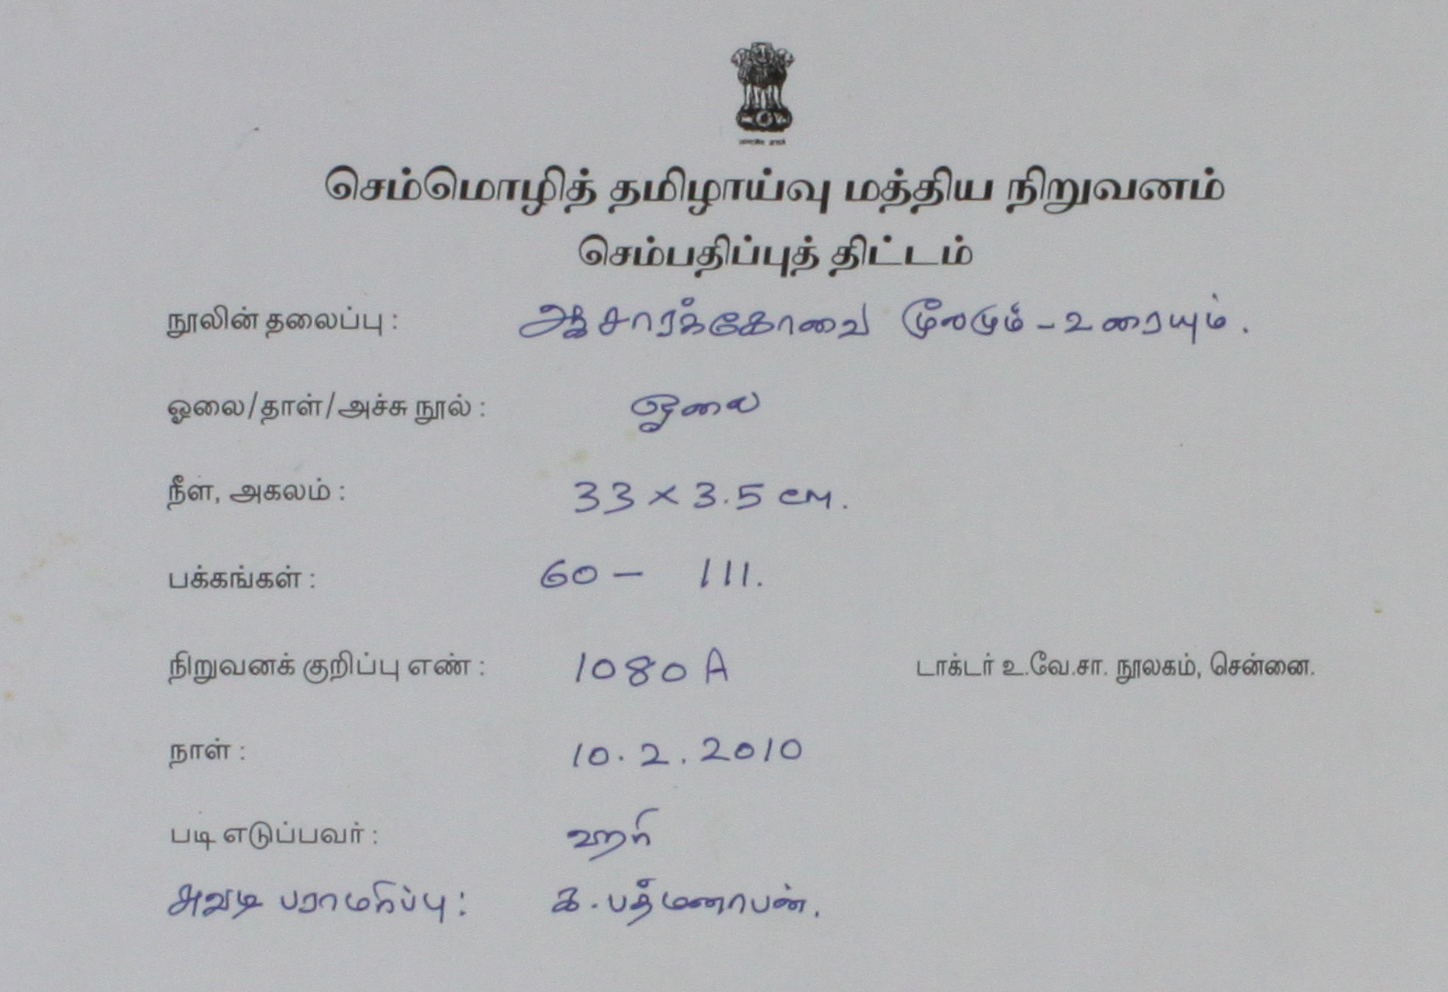 செம்மொழித் தமிழாய்வு மத்திய நிறுவனம்
செம்பதிப்புத் திட்டம்
நூலின் தலைப்பு : ஆசாரக்கோவை மூலமும் - உரையும்.
ஓலை/தாள்/அச்சு நூல் : ஓலை
நீள, அகலம் : 33 x 3.5 cm.
பக்கங்கள் : 60 - 111.
நிறுவனக் குறிப்பு எண் : 1080 A டாக்டர் உ.வே.சா. நூலகம், சென்னை.
நாள் : 10.2.2010
படி எடுப்பவர் : ஹரி
சுவடி பராமரிப்பு : க. பத்மனாபன்.